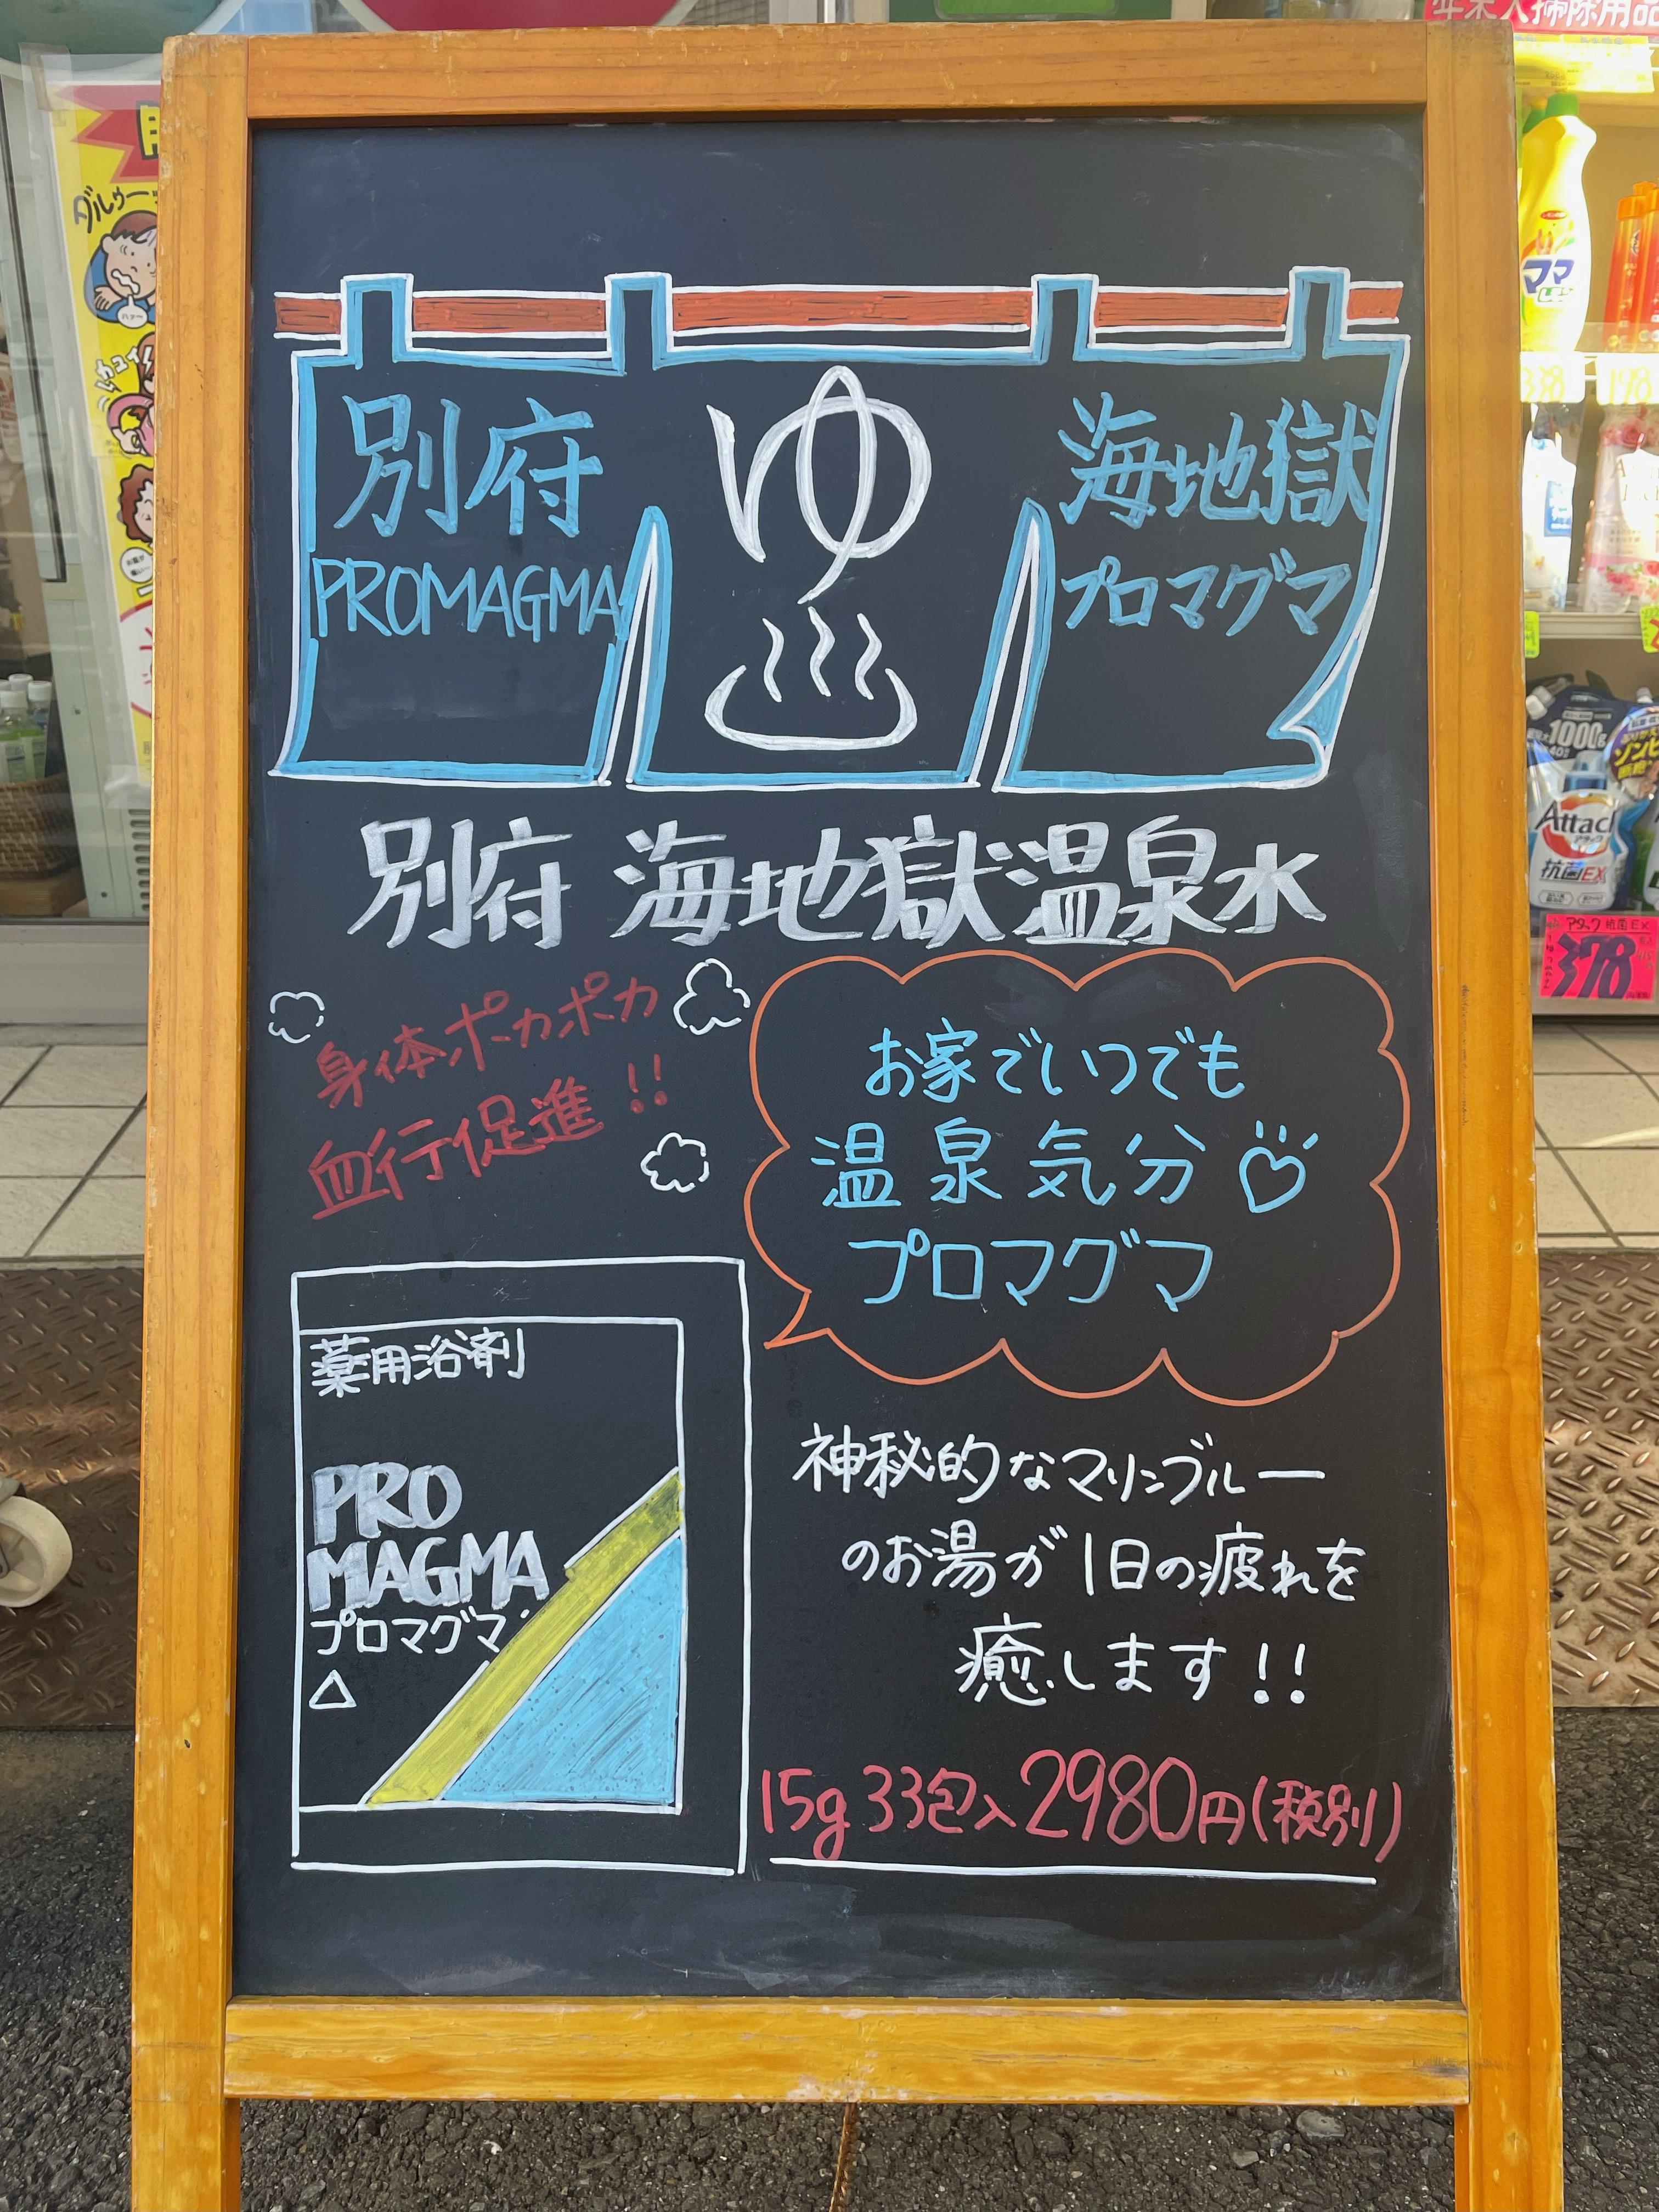 別府
PROMAGMA
ゆ
海地獄
プロマグマ
別府 海地獄温泉水
身体ポカポカ
血行促進!!
お家でいつでも
温泉気分
プロマグマ
薬用浴剤
PRO
MAGMA
プロマグマ
神秘的なマリンブルー
のお湯が1日の疲れを
癒します!!
15g33包入2980円(税別)
年末大掃除用品
ママ
338
198
1000g
Attack
抗菌EX
アタック抗菌EX
378